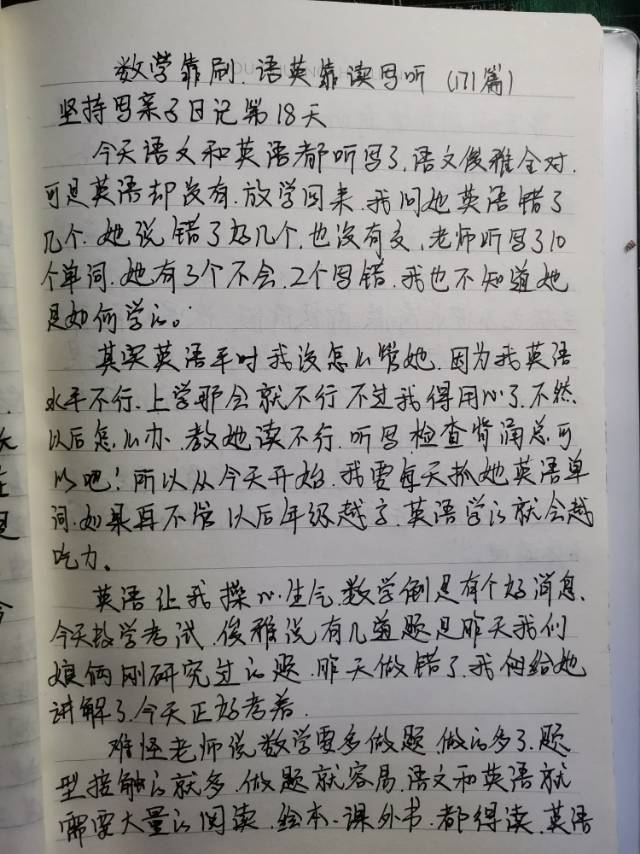 数学靠刷.语英靠读写听 (171篇)
坚持写亲子日记第18天
今天语文和英语都听写了.语文俊雅全对.
可是英语却没有.放学回来.我问她英语错了
几个.她说错了好几个.也没有交.老师听写了10
个单词.她有3个不会.2个写错.我也不知道她
是如何学的。
其实英语平时我没怎么管她.因为我英语
水平不行.上学那会就不行不过我得用心了.不然
以后怎么办.教她读不行.听写检查背诵总可
以吧!所以从今天开始.我要每天抓她英语单
词.如果再不管以后年级越高.英语学的就会越
吃力。
英语让我操心.生气.数学倒是有个好消息.
今天数学考试.俊雅说有几道题是昨天我们
娘俩刚研究过的题.昨天做错了.我们给她
讲解了.今天正好考着.
难怪老师说数学要多做题.做的多了.题
型接触的就多.做题就容易.语文和英语就
需要大量的阅读.绘本.课外书.都得读.英语